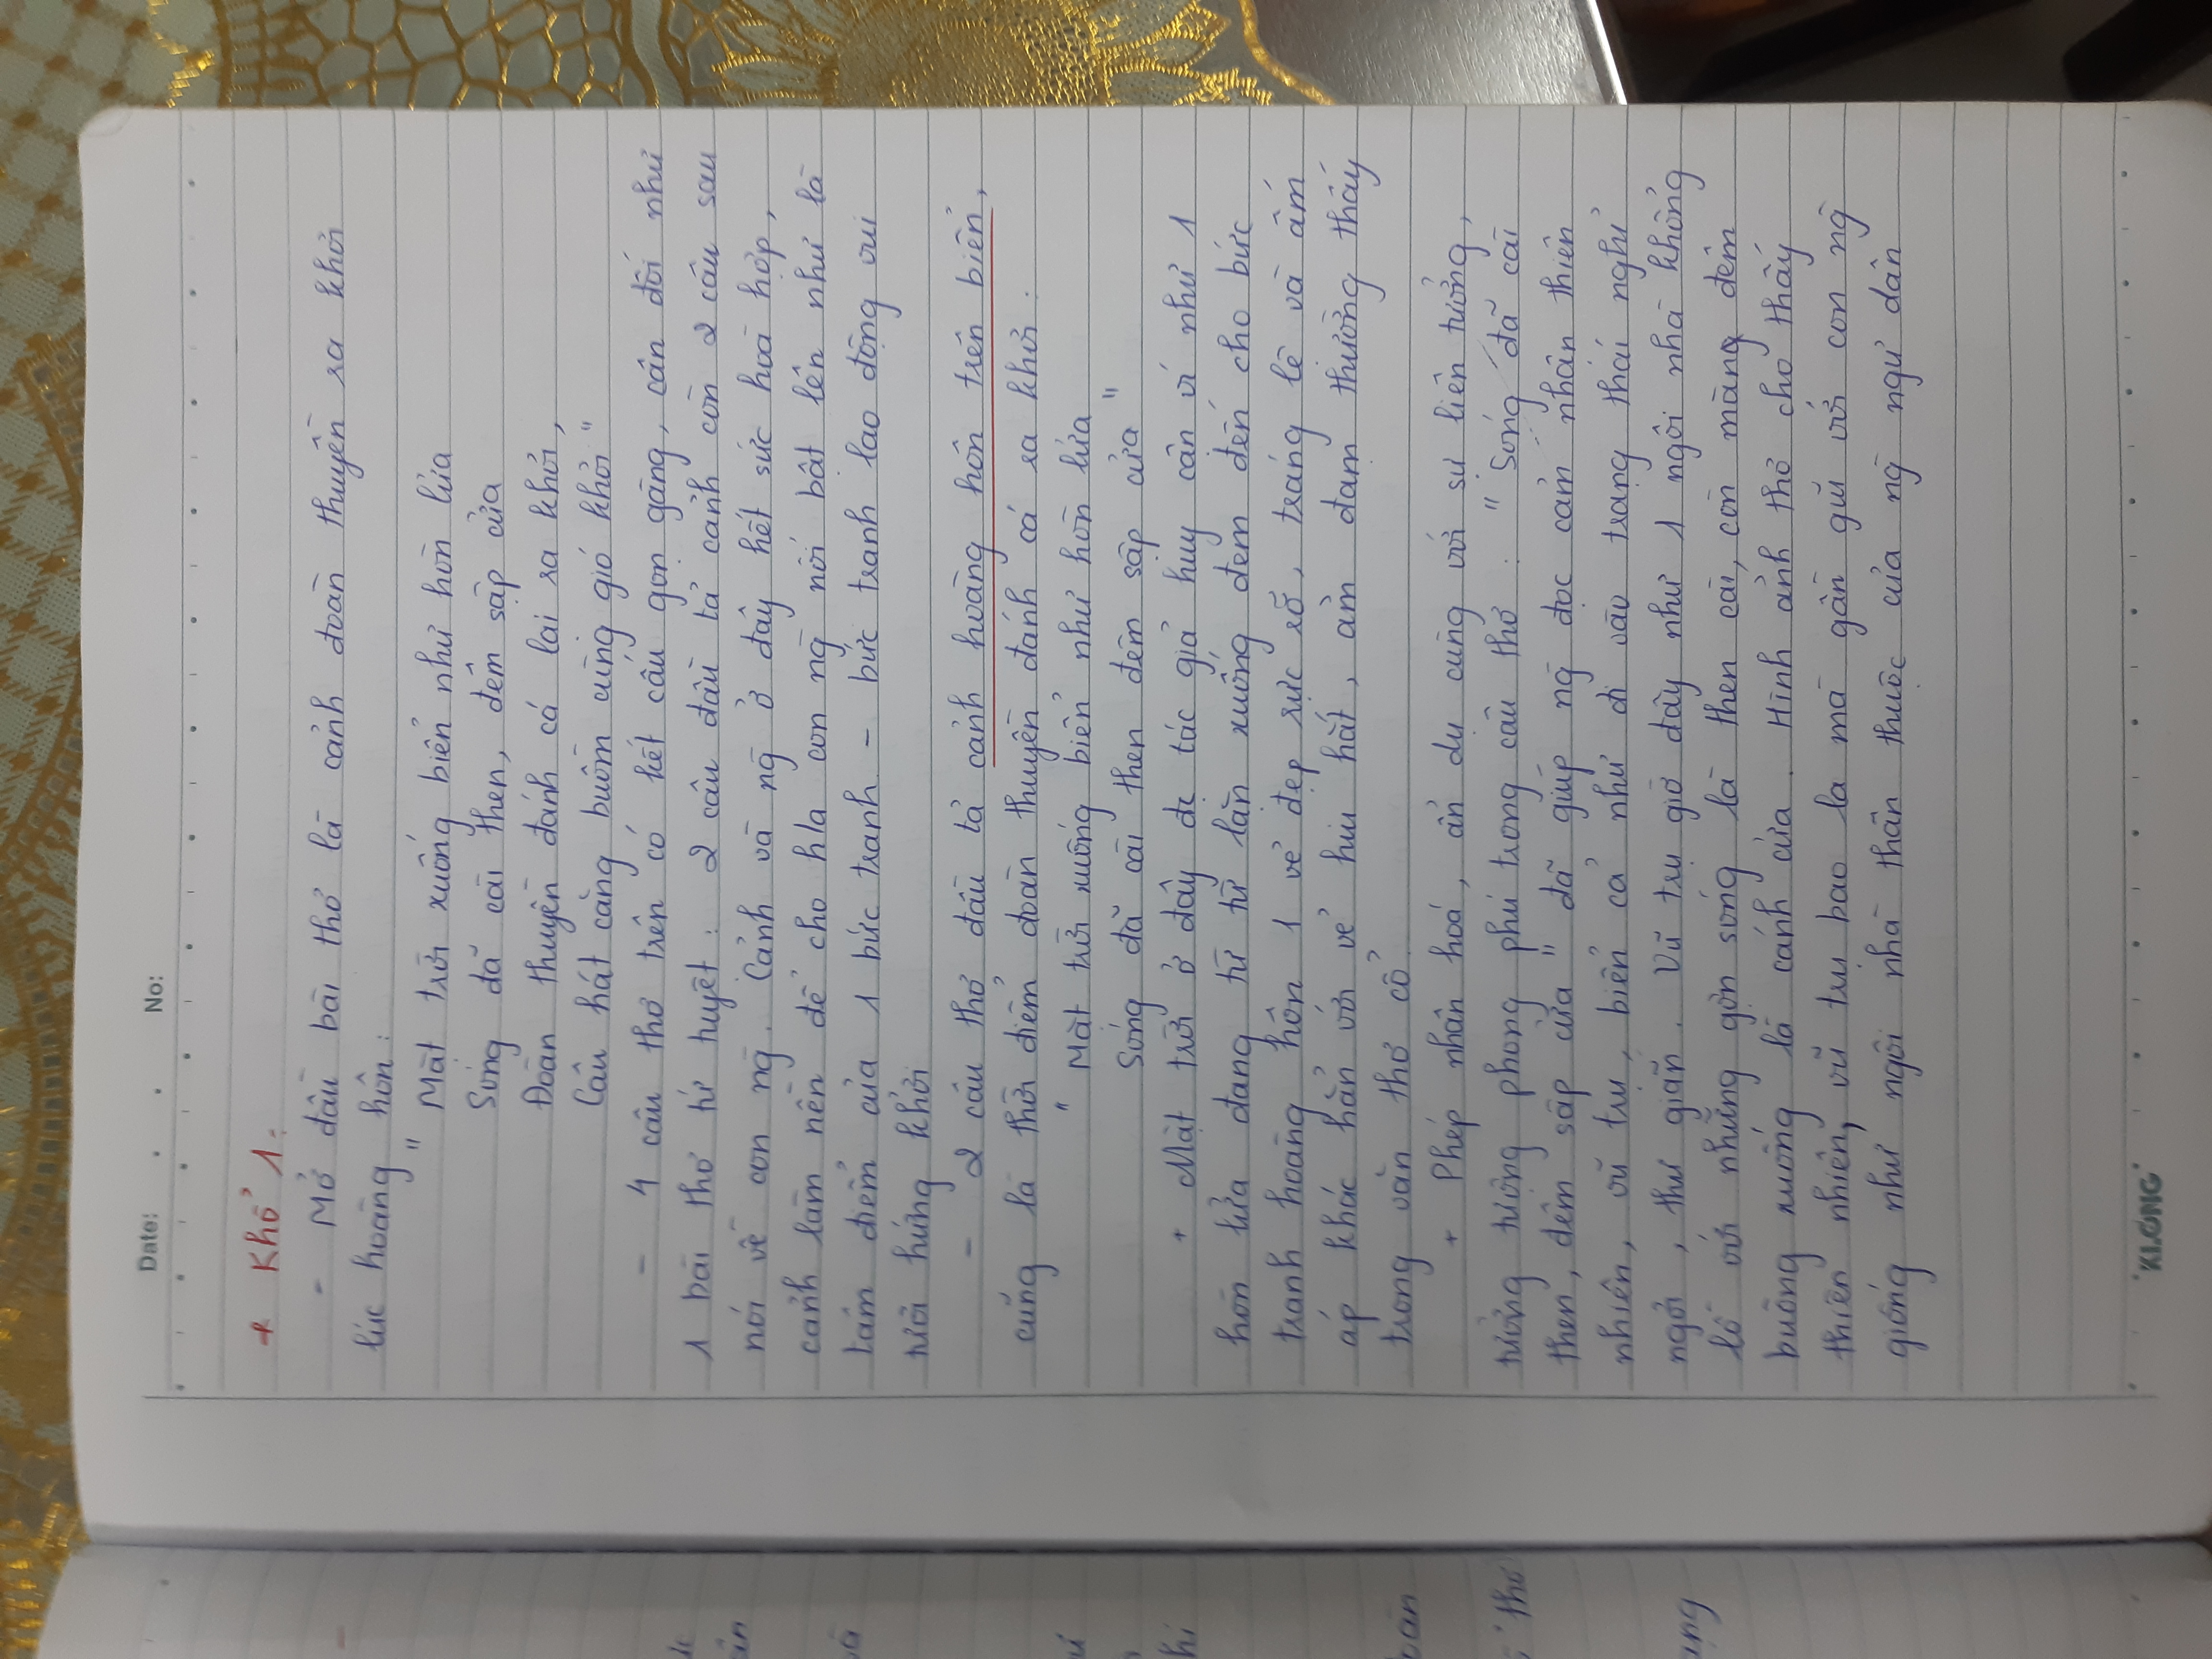 Date: . . No:
+ Khổ 1:
- Mở đầu bài thơ là cảnh đoàn thuyền ra khơi
lúc hoàng hôn:
" Mặt trời xuống biển như hòn lửa
Sóng đã cài then, đêm sập cửa
Đoàn thuyền đánh cá lại ra khơi,
Câu hát căng buồm cùng gió khơi "
- 4 câu thơ trên có kết cấu gọn gàng, cân đối như
1 bài thơ tứ tuyệt : 2 câu đầu tả cảnh còn 2 câu sau
nói về con ng̀. Cảnh và ng̀ ở đây hết sức hoà hợp,
cảnh làm nền để cho h/a con ng̀ nổi bật lên như là
tâm điểm của 1 bức tranh - bức tranh lao động vui
tươi hứng khởi
- 2 câu thơ đầu tả cảnh hoàng hôn trên biển,
cũng là thời điểm đoàn thuyền đánh cá ra khơi :
" Mặt trời xuống biển như hòn lửa
Sóng đã cài then đêm sập cửa "
+ Mặt trời ở đây đc tác giả huy cận ví như 1
hòn lửa đang từ từ lặn xuống đem đến cho bức
tranh hoàng hôn 1 vẻ đẹp rực rỡ, tráng lệ và ấm
áp khác hẳn với vẻ hiu hắt, ảm đạm thường thấy
trong văn thơ cổ.
+ Phép nhân hoá, ẩn dụ cùng với sự liên tưởng,
tưởng tượng phong phú trong câu thơ : " Sóng đã cài
then, đêm sập cửa " đã giúp ng̀ đọc cảm nhận thiên
nhiên, vũ trụ, biển cả như đi vào trạng thái nghỉ
ngơi, thư giãn. Vũ trụ giờ đây như 1 ngôi nhà khổng
lồ với những gợn sóng là then cài, còn màng đêm
buông xuống là cánh cửa. Hình ảnh thơ cho thấy
thiên nhiên, vũ trụ bao la mà gần gũi với con ng̀
giống như ngôi nhà thân thuộc của ng̀ ngư dân
KLONG